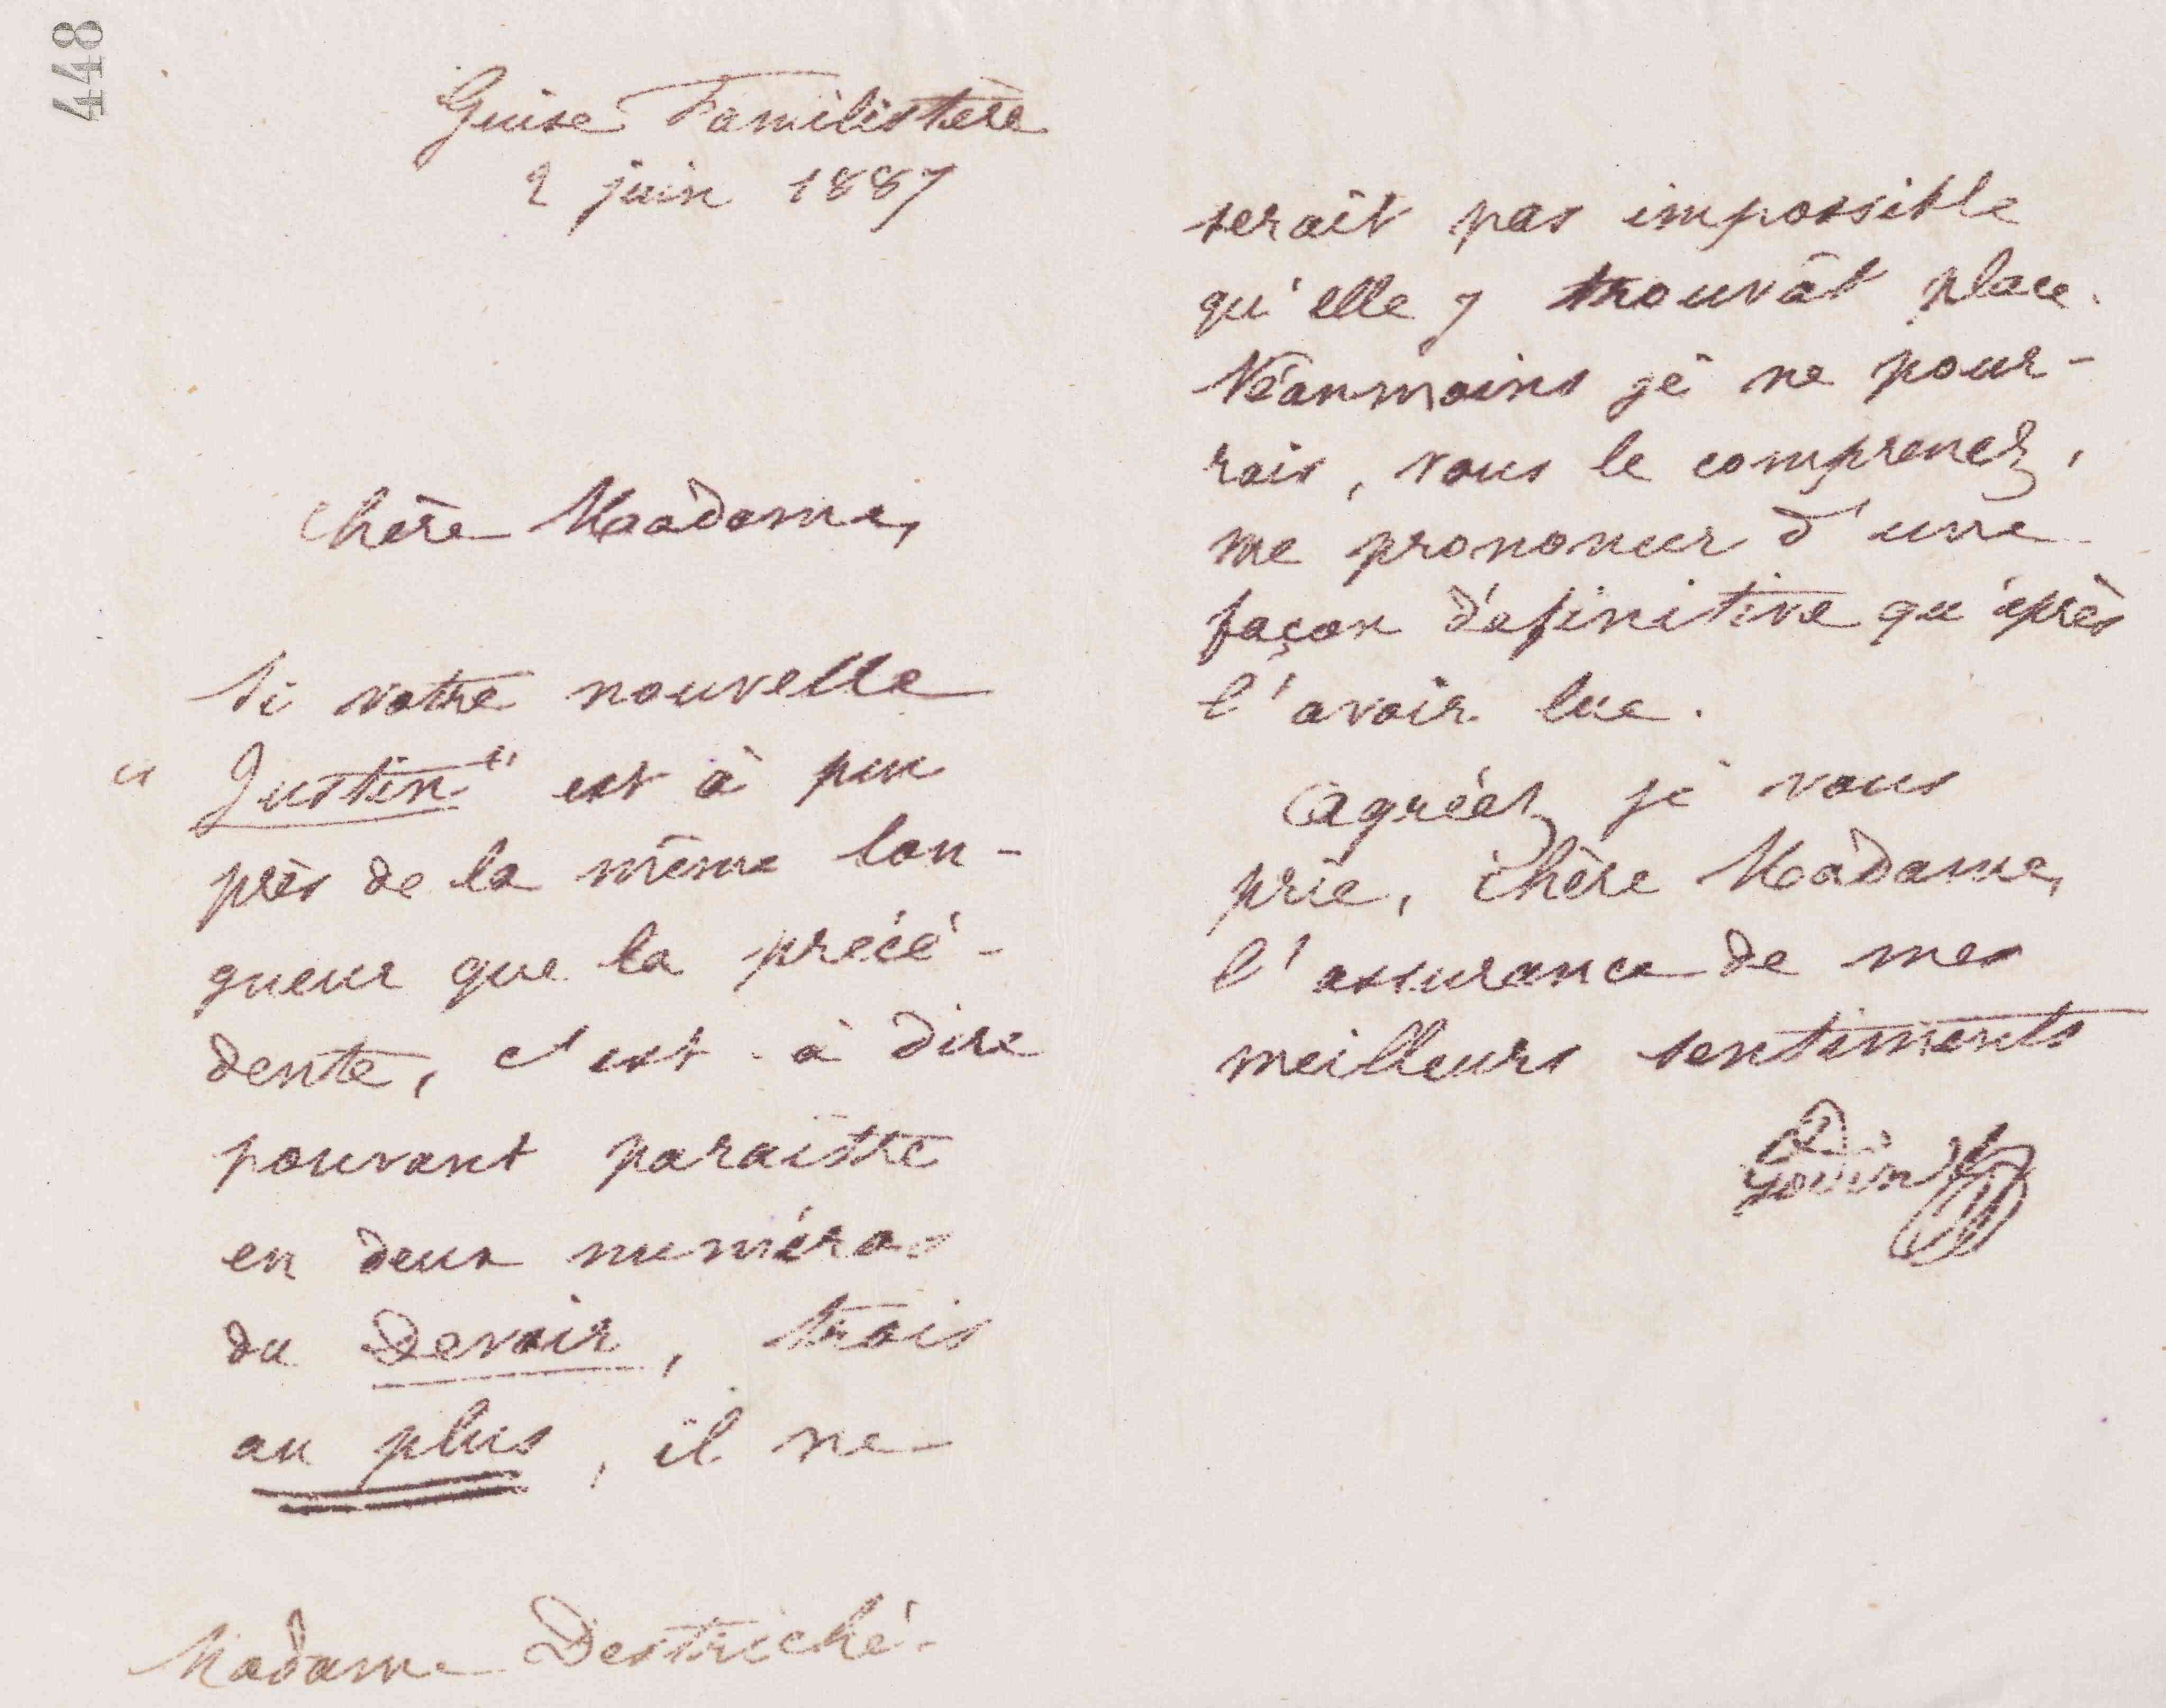 448
Guise Familistère
2 juin 1887
Chère Madame,
Si votre nouvelle
"Justin" est à peu
près de la même lon-
gueur que la précé-
dente, c'est-à dire
pouvant paraître
en deux numéros
du Devoir, trois
au plus, il ne
Madame Destriché
serait pas impossible
qu'elle y trouvât place.
Néanmoins je ne pour-
rais, vous le comprenez,
me prononcer d'une
façon définitive qu'après
l'avoir lue.
Agréez, je vous
prie, chère Madame,
l'assurance de mes
meilleurs sentiments
Godin